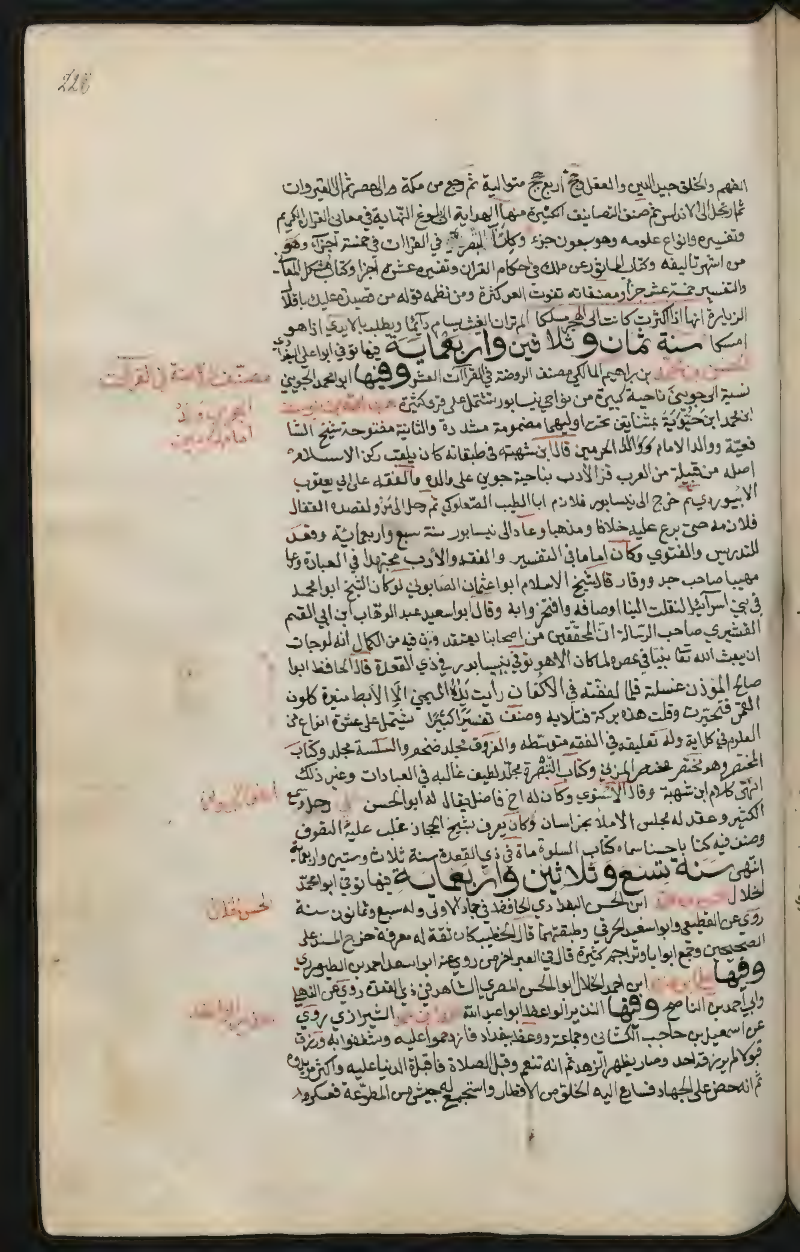 228
الفهم والخلق جيد الدين والعقل وحج أربع حجج متوالية ثم رجع من مكة الى مصر ثم الى القيروان
ثم ارتحل الى الاندلس ثم صنف التصانيف الكثيرة منها الهداية الى بلوغ النهاية في معاني القران الكريم
وتفسيره وانواع علومه وهو سبعون جزء وكتاب التبصرة في القراات في خمسة اجزاء وهو
من اشهر تاليفه وكتاب الماثور عن مالك في احكام القران وتفسيره عشرة اجزا وكتاب مشكل المعاني
والتفسير خمسة عشر جزأ ومصنفاته تفوت العد كثرة ومن نظمه قوله من قصيدة عليك باقلال
الزيارة انها اذا كثرت كانت الى الهجر مسلكا الم تر ان الغيث يسام دائما ويطلب بالايدي اذا هو
امسكا سنة ثمان وثلاثين واربعماية فيها توفي ابو علي البغدادي
الحسن بن محمد بن ابراهيم المالكي مصنف الروضة في القراآت العشر وفيها ابو محمد الجويني
مصنف الروضة في القراآت
نسبة الى جوين ناحية كبيرة من نواحي نيسابور تشتمل على قرى كثيرة عبد الله بن يوسف
الجويني والد
امام الحرمين
ابن محمد ابن حيوية بمثناتين تحت اوليهما مضمومة مشددة والثانية مفتوحة شيخ الشا
فعية ووالد الامام ووالد الحرمين قال ابن شهبة في طبقاته كان يلقب ركن الاسلام
اصله من قبيلة من العرب قرأ الأدب بناحية جوين على والده والفقه على ابي يعقوب
الابيوردي ثم خرج الى نيسابور فلازم ابا الطيب الصعلوكي ثم رحل الى مرو لقصد القفال
فلازمه حتى برع عليه خلافا ومذهبا وعاد الى نيسابور سنة سبع واربعمائة وقعد
للتدريس والفتوي وكان اماما في التفسير والفقه والأدب مجتهدا في العبادة ورعا
مهيبا صاحب جد ووقار قال شيخ الاسلام ابو عثمان الصابوني لو كان الشيخ ابو محمد
في بني اسرائيل لنقلت الينا اوصافه وافتخروا به وقال ابو سعيد عبد الوهاب ابن ابي القسم
القشيري صاحب الرسالة ان المحققين من اصحابنا يعتقدون فيه من الكمال أنه لو جاز
ان يبعث الله تعا نبيا في عصره لما كان الا هو توفي بنيسابور في ذي القعدة قال الحافظ ابو
صالح المؤذن غسلته فلما لففته في الأكفان رأيت يده اليمني الى الابط منيرة كلون
القمر فتحيرت وقلت هذه بركة فتاويه وصنف تفسيرا كبيرا يشتمل على عشرة انواع من
العلوم في كل اية وله تعليقه في الفقه متوسطه والفروق مجلد ضخم والسلسلة مجلد وكتاب
المختصر وهو مختصر مختصر المزني وكتاب التبصرة مجلد لطيف غالبه في العبادات وغير ذلك
انتهى كلام ابن شهبة وقال الاسنوي وكان له اخ فاضل يقال له ابو الحسن علي رحل وسمع
الكثير وعقد له مجلس الاملا بخراسان وكان يعرف بشيخ الحجاز غلب عليه التصوف
وصنف فيه كتابا حسنا سماه كتاب السلوة مات في ذي القعدة سنة ثلاث وستين واربعماية
انتهى سنة تسع وثلاثين واربعماية فيها توفي ابو محمد
الخلال الحسن بن محمد ابن الحسن البغدادي الحافظ في جماد الاولى وله سبع وثمانون سنة
الحسن الخلال
روى عن القطيعي وابو سعيد الحرفي وطبقتهما قال الخطيب كان ثقة له معرفة خرج المسند على
الصحيحين وجمع ابوابا وتراجم كثيرة قال في العبر اخر من روى عنه ابو اسعد احمد بن الطيوري
وفيها علي بن منير ابن احمد الخلال ابو الحسن المصري الشاهد في ذي القعدة روى عن الذهلي
وابي احمد بن الناصح وفيها النذير الواعظ ابو عبد الله الشيرازي روى
عن اسمعيل بن حاجب الكشاني وجماعة ووعظ ببغداد فازدحموا عليه وشغفوا به ورزق
قبولا لم يرزقه احد وصار يظهر الزهد ثم انه تنعم وقبل الصلات فاقبلت الدنيا عليه وكثر مريدوه
ثم انه حض على الجهاد فسارع اليه الخلق من الاقطار واستجمع له جيش من المطوعة فعسكر